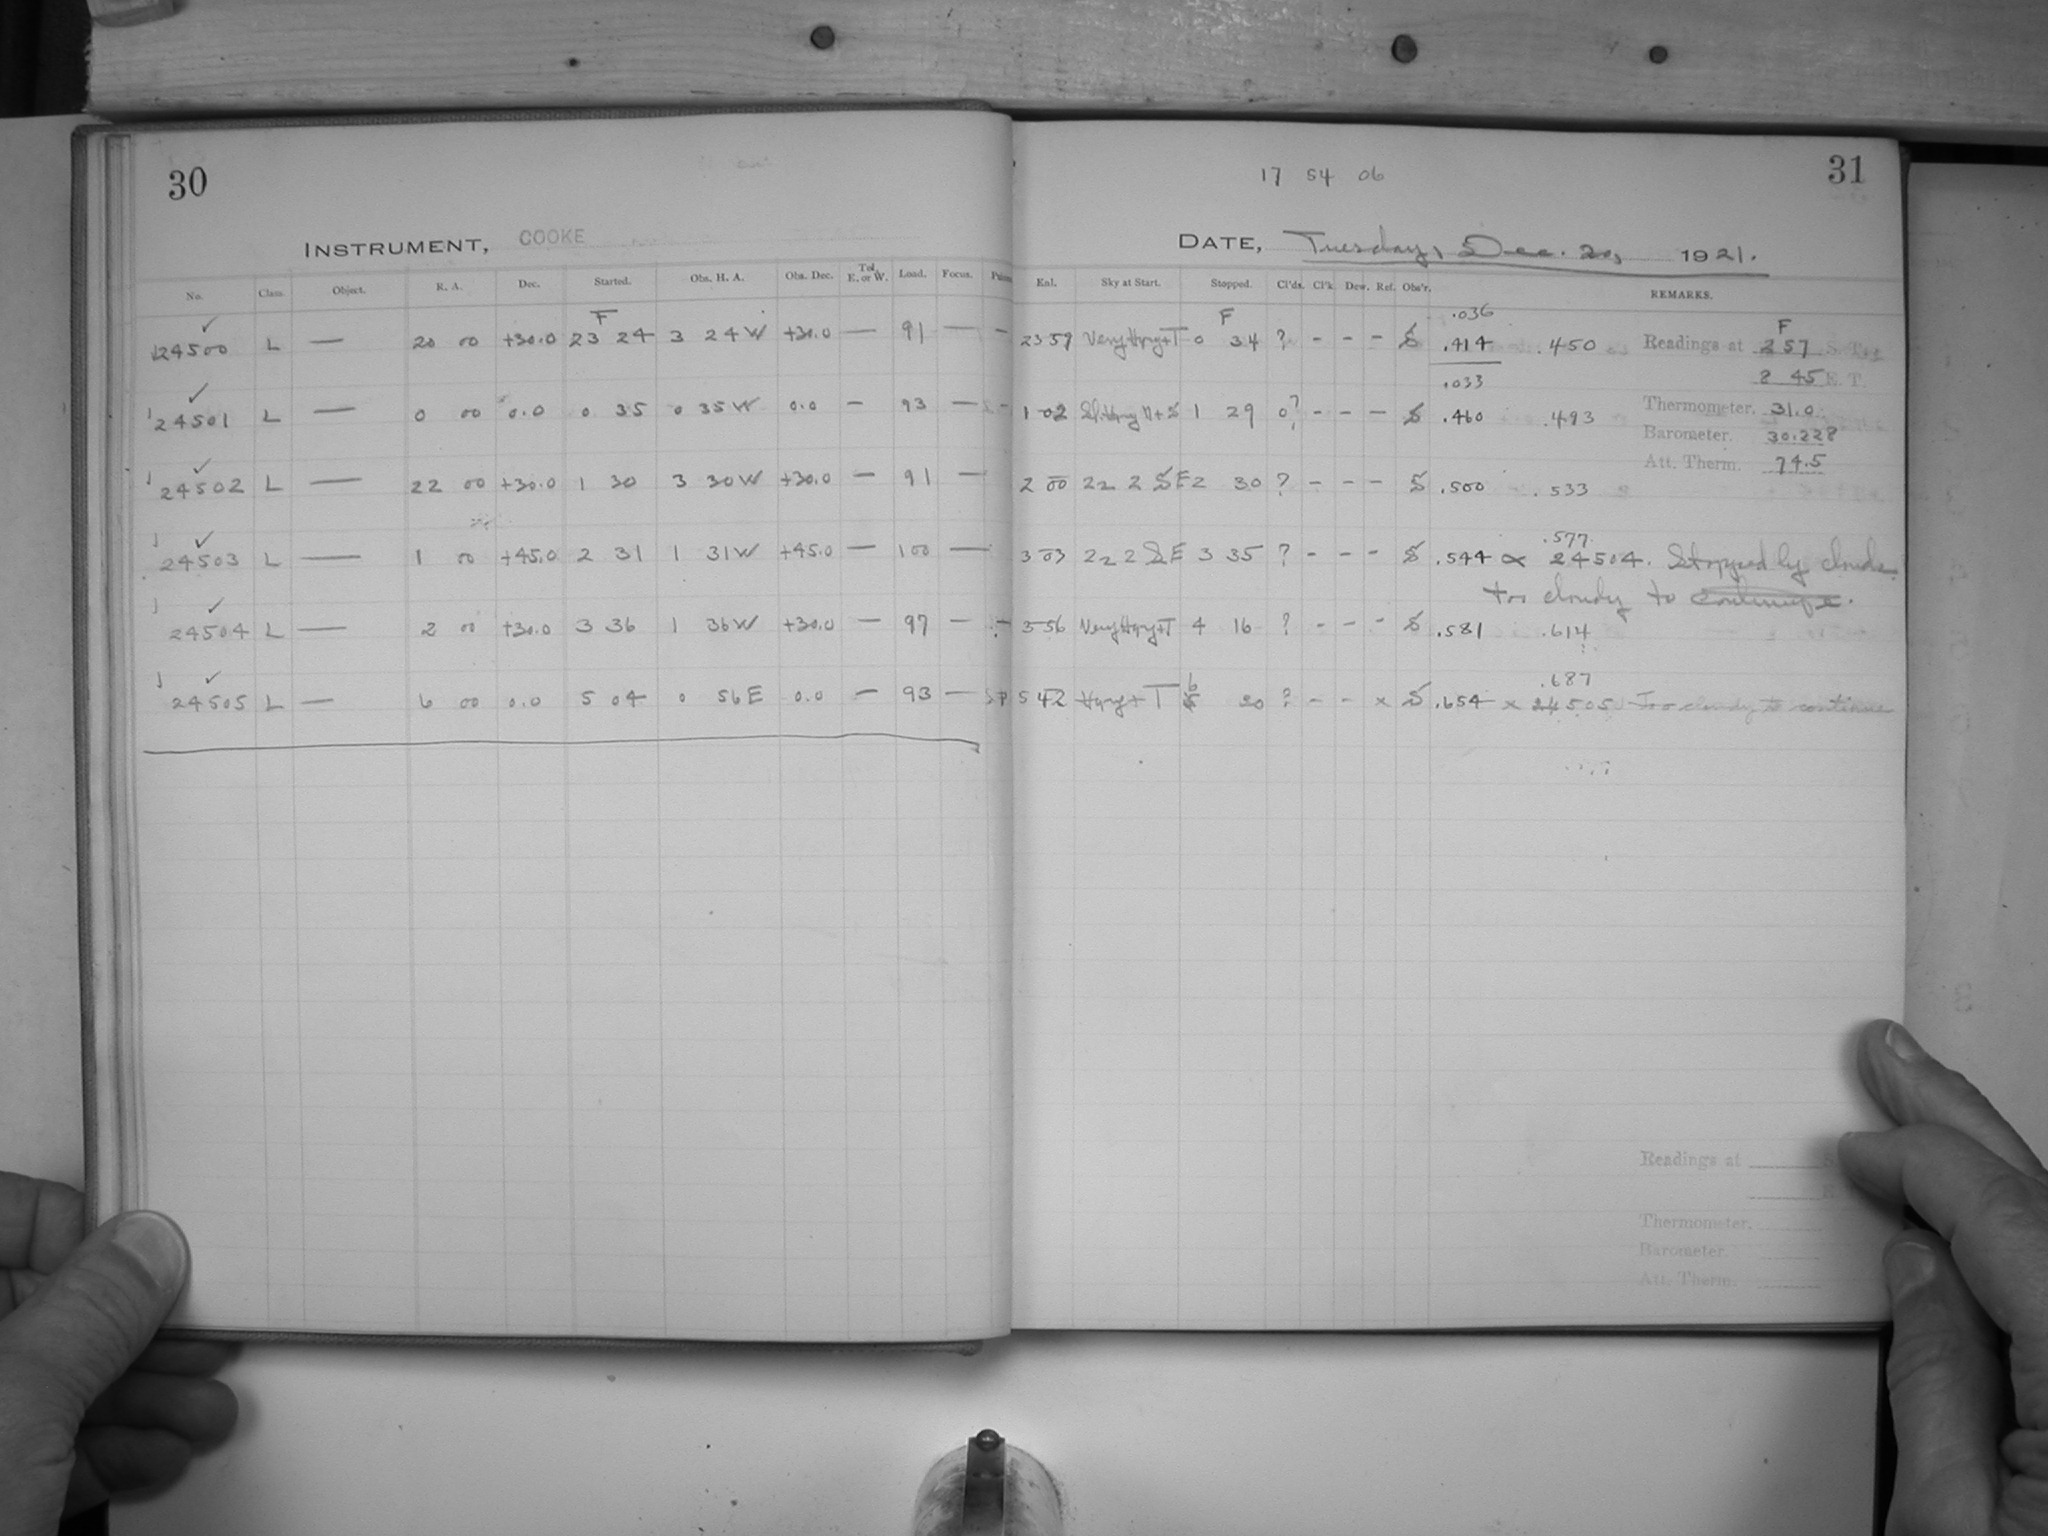 30
17 54 06
31
INSTRUMENT, COOKE
DATE, Tuesday, Dec. 20, 1921.
No. Class. Object. R. A. Dec. Started. Obs. H. A. Obs. Dec. Tel. E. or W. Load. Focus. Exl. Sky at Start. Stopped. Cl'ds. Cl'k. Dew. Ref. Obs'r. REMARKS.
F F .036 F
✓ 24500 L — 20 00 +30.0 23 24 3 24 W +30.0 — 91 — - 23 59 Very Hazy+T 0 34 ? - - - S .414 .450 Readings at 2 57 S. T.
.033 8 45 E. T.
✓ 24501 L — 0 00 0.0 0 35 0 35 W 0.0 — 93 — - 1 02 Sl. Hazy N+S 1 29 0? - - - S .460 .493 Thermometer. 31.0
Barometer. 30.228
Att. Therm. 74.5
✓ 24502 L — 22 00 +30.0 1 30 3 30 W +30.0 — 91 — 2 00 22 2 SE 2 30 ? - - - S .500 .533
.577
✓ 24503 L — 1 00 +45.0 2 31 1 31 W +45.0 — 100 — 3 03 22 2 SE 3 35 ? - - - S .544 x 24504. Stopped by clouds.
too cloudy to continue.
✓ 24504 L — 2 00 +30.0 3 36 1 36 W +30.0 — 97 — - 3 56 Very Hazy+T 4 16 ? - - - S .581 .614
.687
✓ 24505 L — 6 00 0.0 5 04 0 56 E 0.0 — 93 — 5 42 Hazy+T 6 20 ? - - x S .654 x 24505 Too cloudy to continue
Readings at
Thermometer.
Barometer.
Att. Therm.